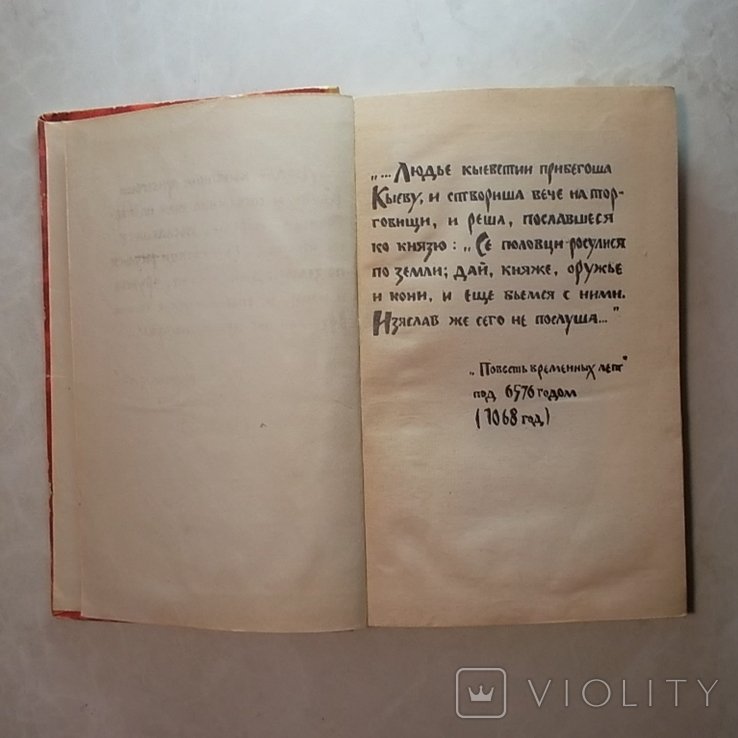 „...Людье кыевстии прибегоша
Кыеву, и створиша вече на тор-
говищи, и реша, пославшеся
ко князю: „Се половци росулися
по земли; дай, княже, оружье
и кони, и еще бьемся с ними.
Изяслав же сего не послуша..."
„Повесть временных лет"
под 6576 годом
(1068 год)
VIOLITY